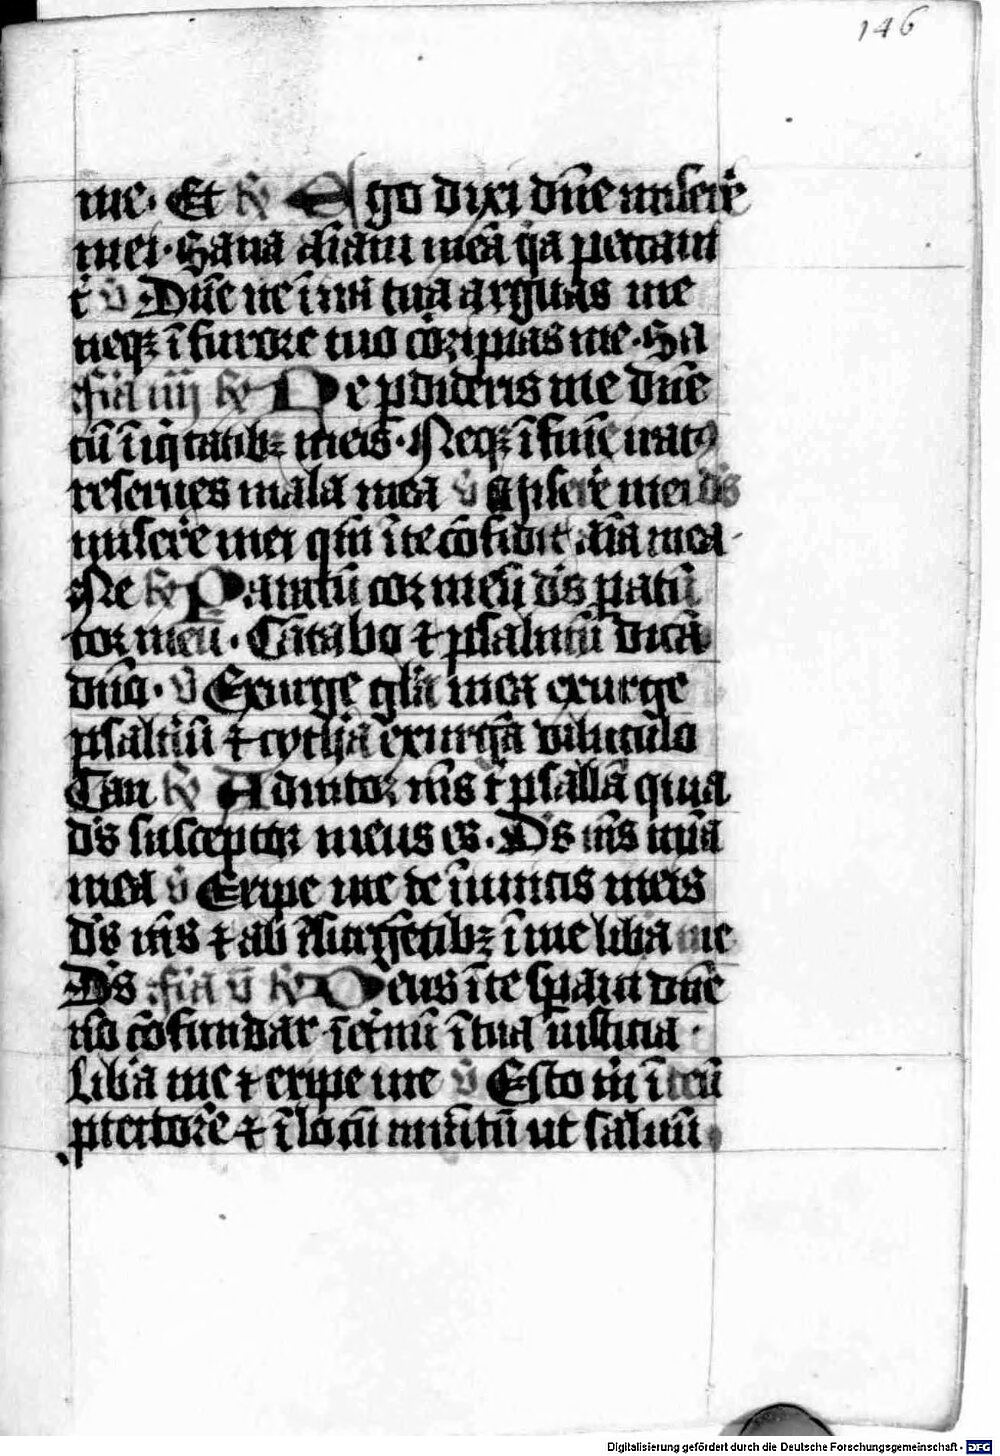 146
me. Et ꝶ Ego dixi dn̄e miserē
mei. Sana āīam meā q̄a peccaui
t̄ v̄ Dn̄e ne ī ira tua arguas me
neqꝫ ī furore tuo cōripias me. Sa
fīa iiij ꝶ Ne ꝑdideris me dn̄e
cū īiq̄tatibꝫ meis. Neqꝫ ī finē iratꝯ
reserues mala mea v̄ Miserē mei ds̄
miserē mei qm̄ ī te cōfidit āīa mea.
Ne ꝶ Paratū cor meū ds̄ paratū
cor meū. Cātabo ⁊ psalmū dicā
dn̄o. v̄ Exurge gl̄ia mea exurge
psaltīū ⁊ cythā exurgā diluculo
Can ꝶ Adiutor m̄s t̄ psallā quia
ds̄ susceptor meus es. Ds̄ m̄s mīa
mea v̄ Eripe me de īimicis meis
ds̄ m̄s ⁊ ab īsurgētibꝫ ī me lib̄a me
Ds̄ fīa v̄ ꝶ Deus ī te sp̄aui dn̄e
nō cōfundar īet̄nū ī tua iusticia.
Lib̄a me ⁊ eripe me v̄ Esto m̄ ī deū
ꝓtectorē ⁊ ī locū munitū ut saluū
Digitalisierung gefördert durch die Deutsche Forschungsgemeinschaft - DFG